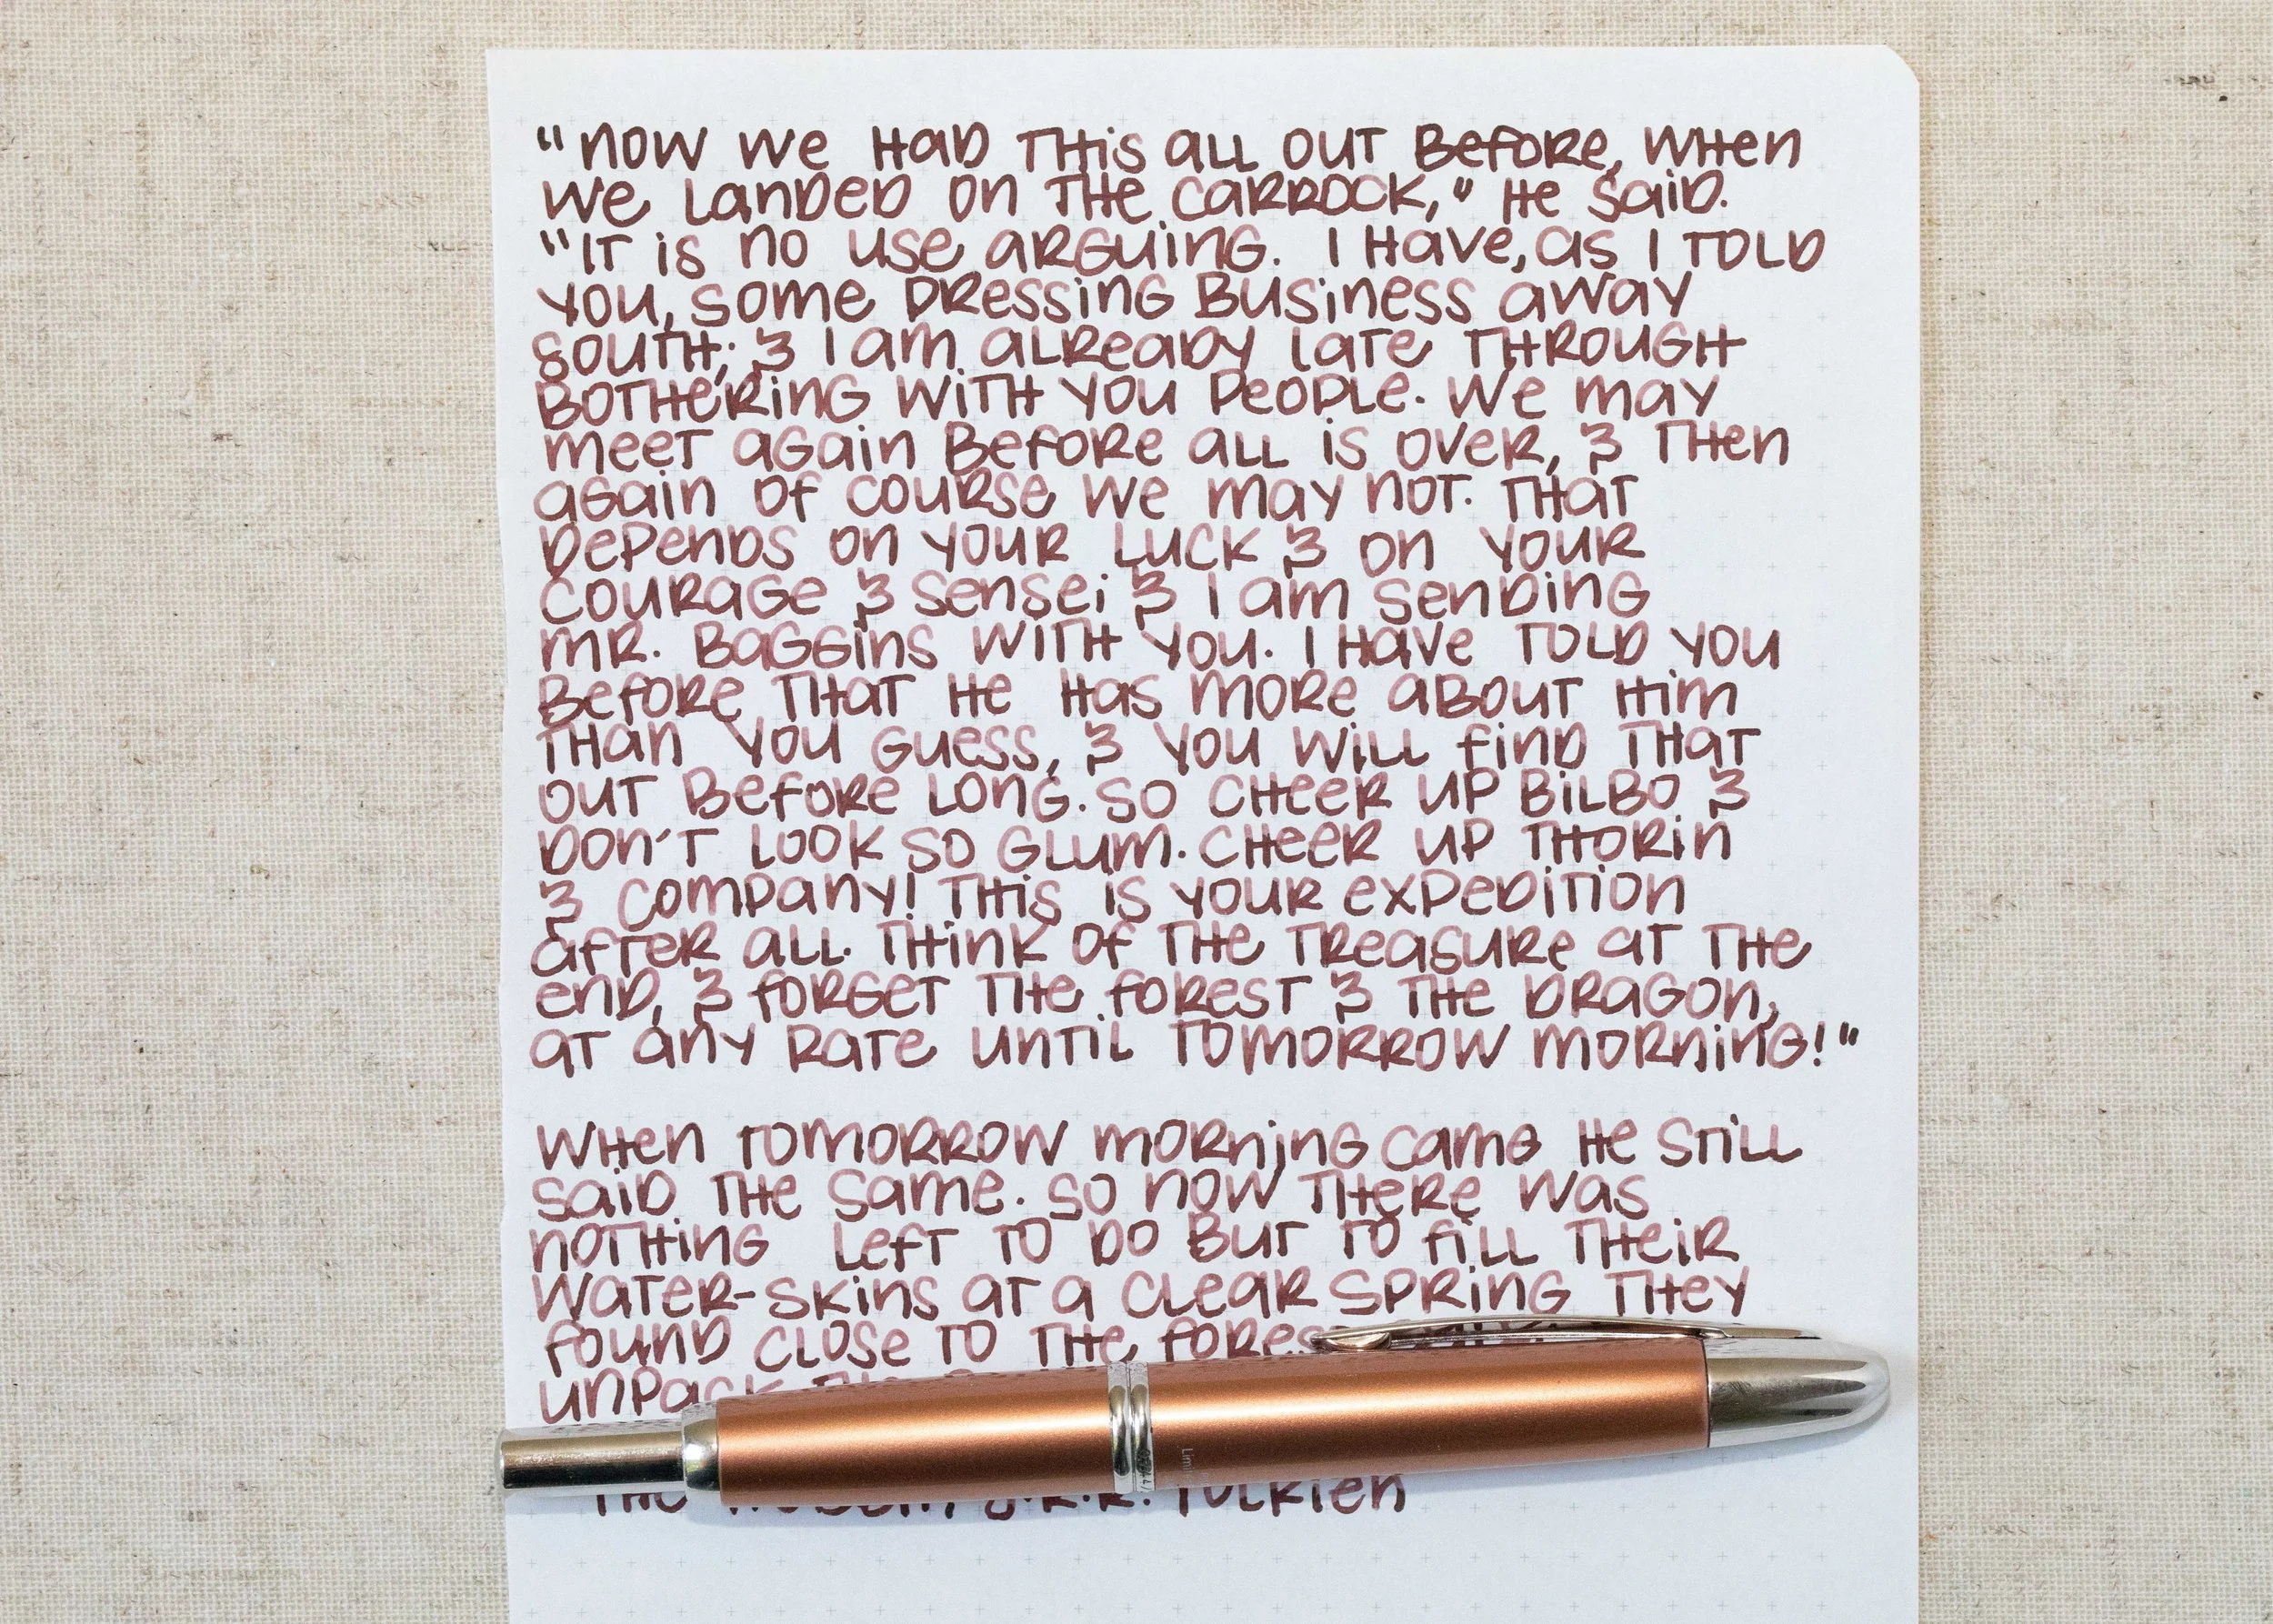 "Now we had this all out before, when
we landed on the Carrock," he said.
"It is no use arguing. I have, as I told
you, some pressing business away
south; & I am already late through
bothering with you people. We may
meet again before all is over, & then
again of course we may not. That
depends on your luck & on your
courage & sense; & I am sending
Mr. Baggins with you. I have told you
before that he has more about him
than you guess, & you will find that
out before long. So cheer up Bilbo &
don't look so glum. Cheer up Thorin
& Company! This is your expedition
after all. Think of the treasure at the
end, & forget the forest & the dragon,
at any rate until tomorrow morning!"
When tomorrow morning came he still
said the same. So now there was
nothing left to do but to fill their
water-skins at a clear spring they
found close to the
unpack
The Hobbit, J.R.R. Tolkien